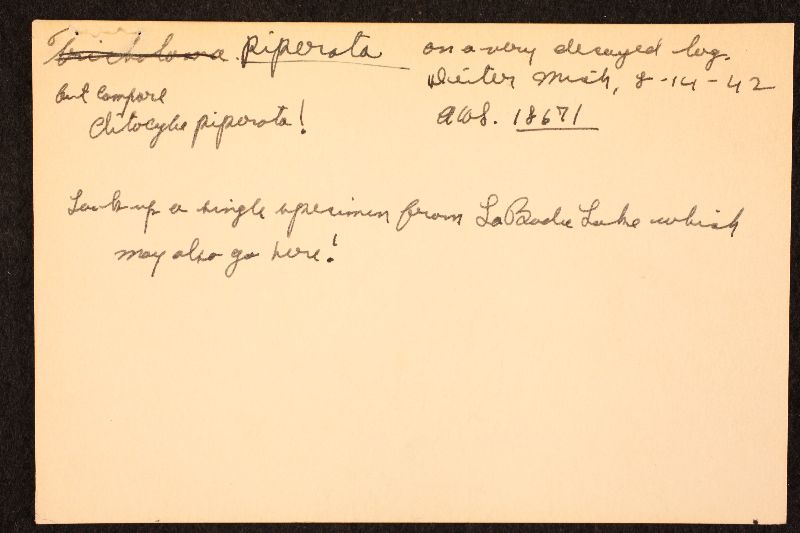 Tricholoma piperata
on a very decayed log.
Dexter Mich, 8-14-42
but compare
Clitocybe piperata!
AHS. 18671
Look up a single specimen from LaBadie Lake which
may also go here!